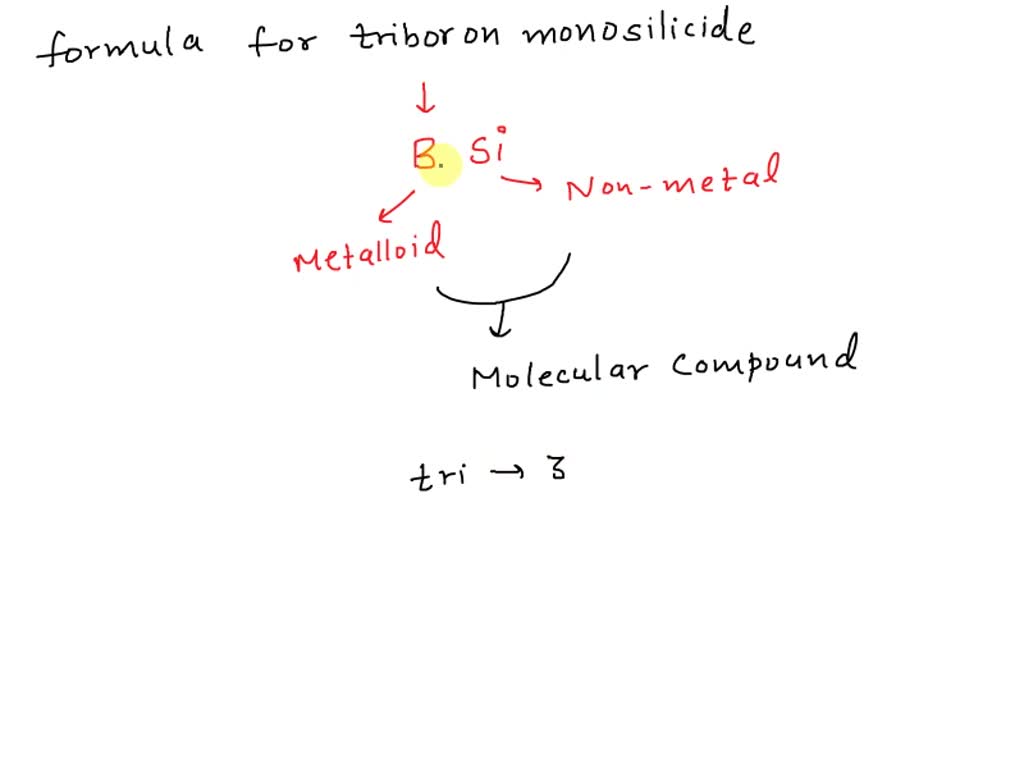 formula for triboron monosilicide
↓
B. Si
→ Non-metal
Metalloid
Molecular compound
tri → 3